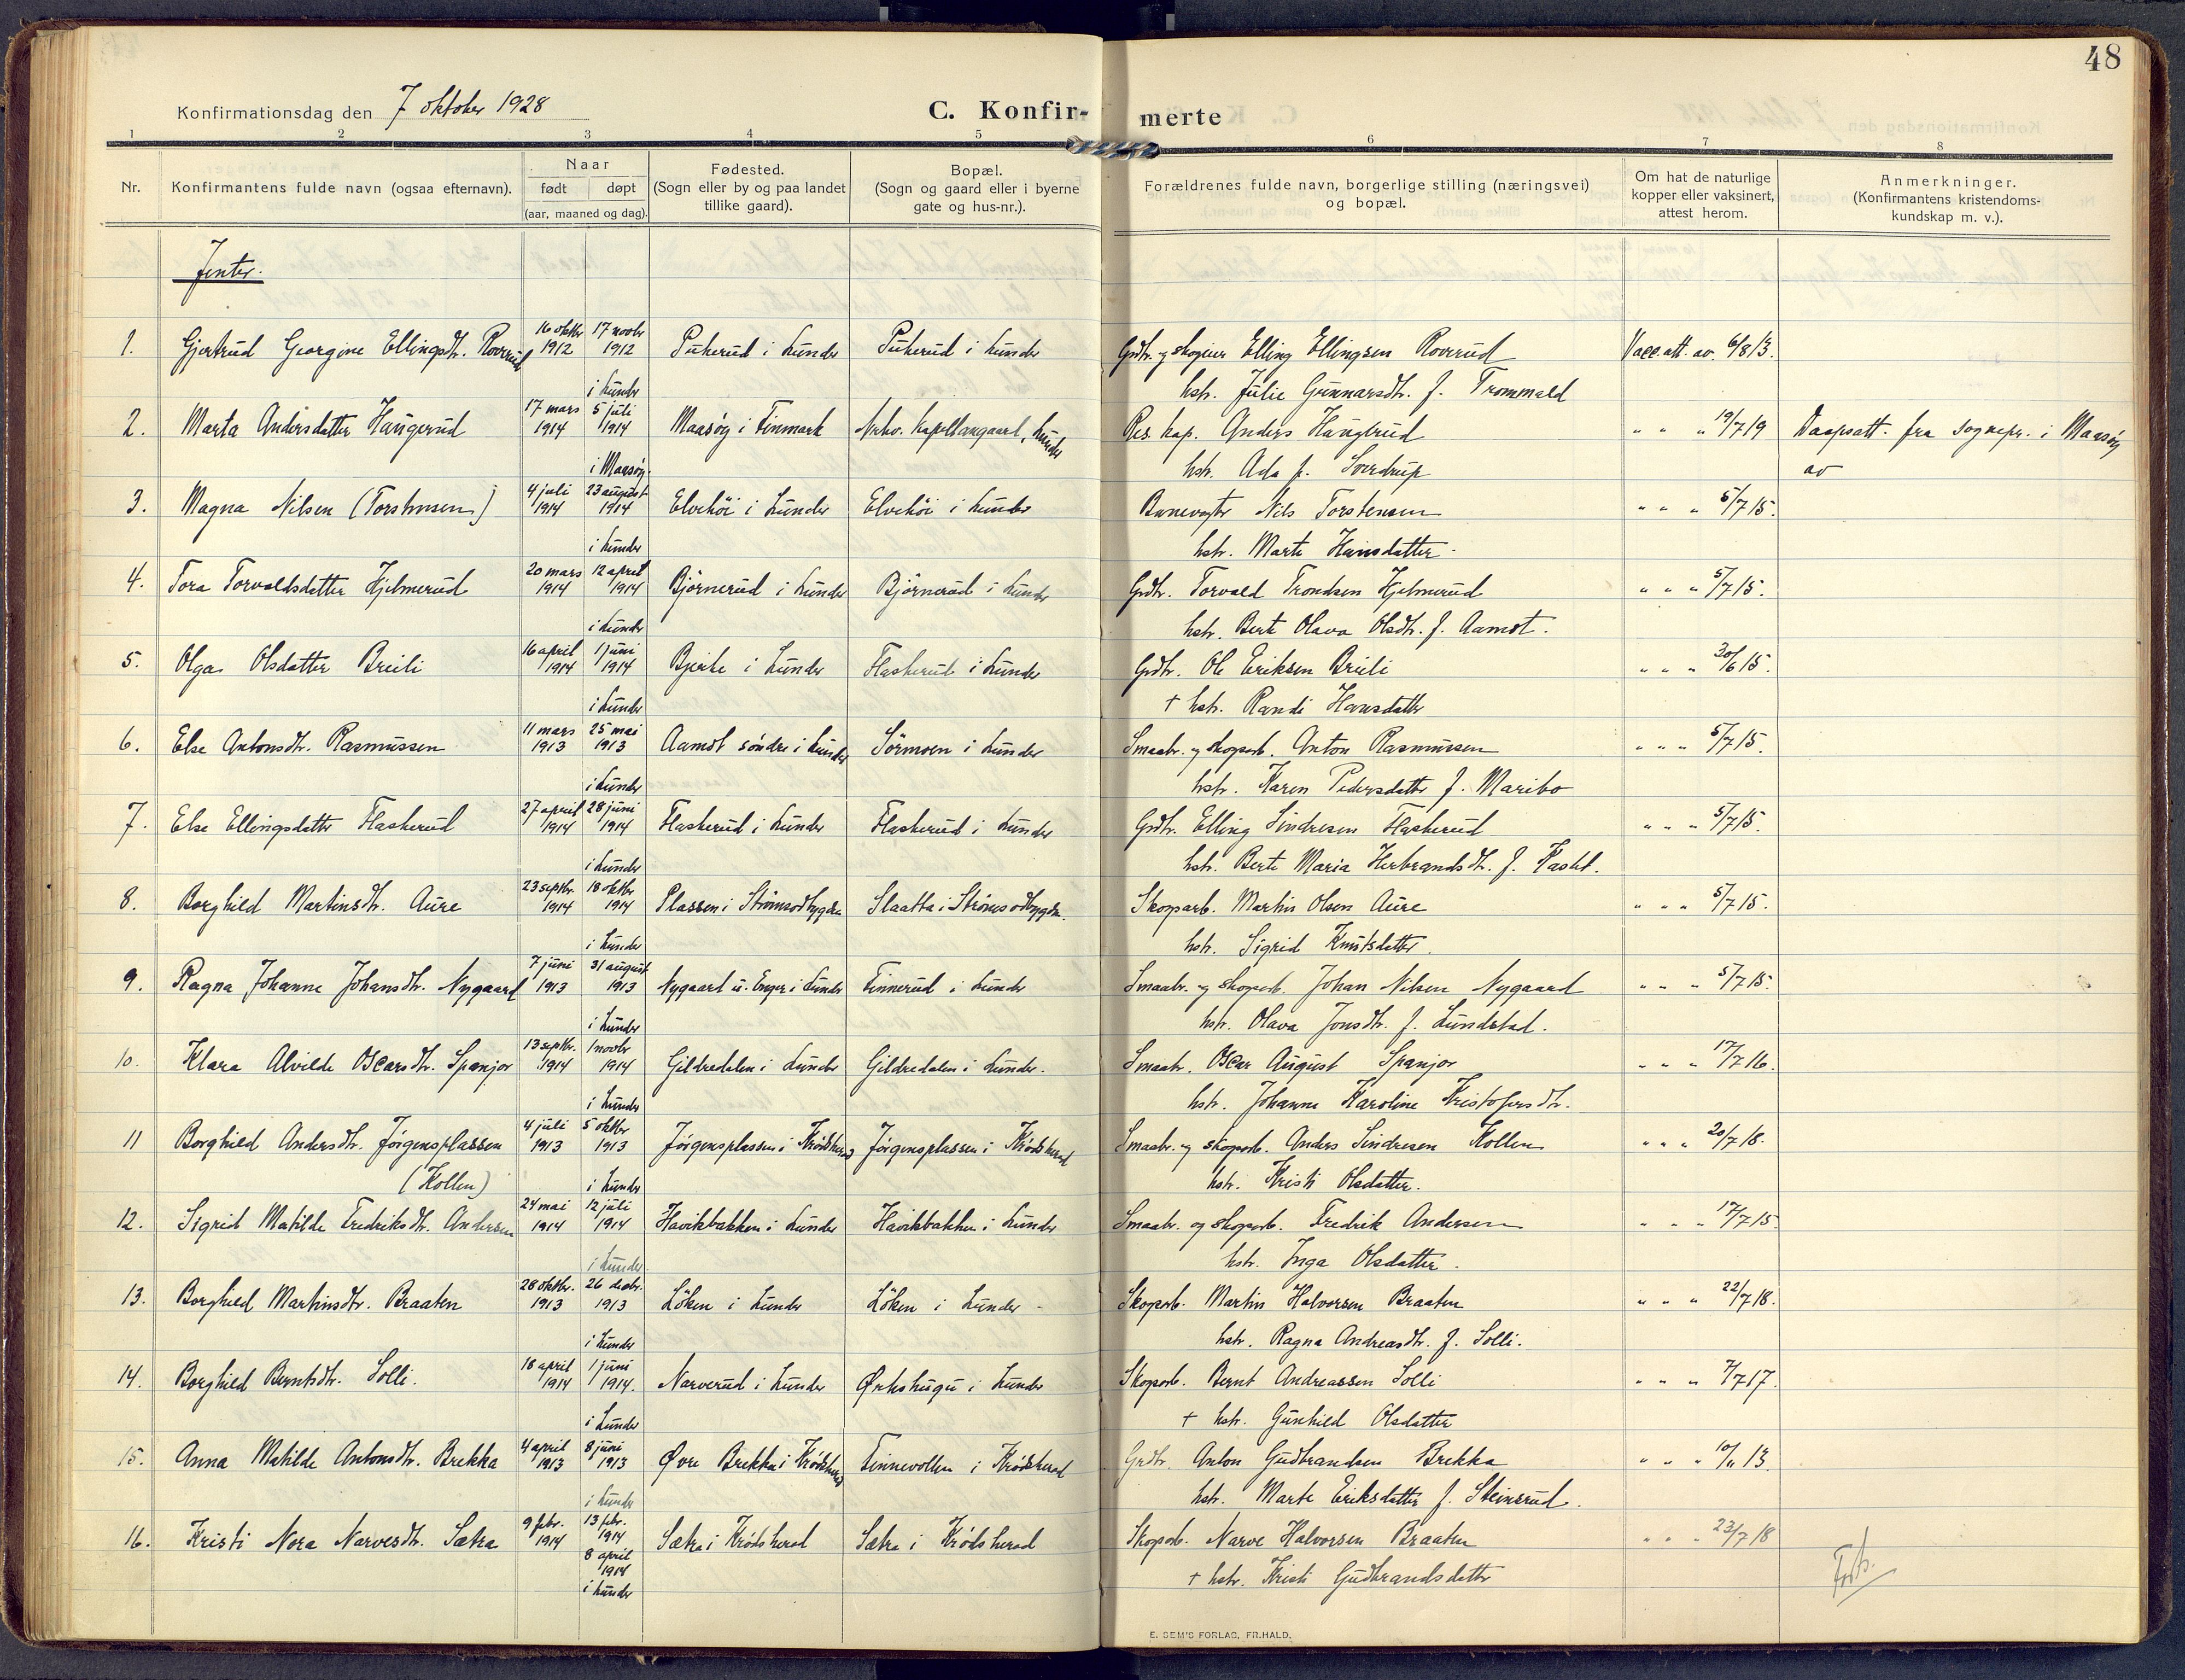 48
Konfirmationsdag den 7 oktober 1928
C. Konfir-
merte
1 2 3 4 5 6 7 8
Nr.
Konfirmantens fulde navn (ogsaa efternavn).
Naar
født døpt
(aar, maaned og dag).
Fødested.
(Sogn eller by og paa landet
tillike gaard).
Bopæl.
(Sogn og gaard eller i byerne
gate og hus-nr.).
Forældrenes fulde navn, borgerlige stilling (næringsvei)
og bopæl.
Om hat de naturlige
kopper eller vaksinert,
attest herom.
Anmerkninger.
(Konfirmantens kristendoms-
kundskap m. v.).
Jenter.
16 oktbr 17 novbr
1. Gjertrud Georgine Ellingsdtr. Roverud 1912 1912 Pukerud i Lunder Pukerud i Lunder Grdbr. og skogeier Elling Ellingsen Roverud Vacc. att. av. 6/8 13.
i Lunder hstr. Julie Gunnarsdtr. f. Trommald
17 mars 5 juli
2. Marta Andersdatter Haugerud 1914 1914 Maasøy i Finmark Kapellangaard, Lunder Res. kap. Anders Haugerud " " " 19/7 19 Daapsatt. fra sognepr. i Maasøy
i Maasøy hstr. Ada f. Sverdrup av
4 juli 23 august
3. Magna Nilsen (Torstensen) 1914 1914 Elvehöi i Lunder Elvehöi i Lunder Banevogter Nils Torstensen " " " 5/7 15.
i Lunder hstr. Marte Hansdatter.
20 mars 12 april
4. Tora Torvaldsdatter Hjelmerud 1914 1914 Björnerud i Lunder Björnerud i Lunder Grdbr. Torvald Trondsen Hjelmerud " " " 5/7 15.
i Lunder hstr. Berte Olava Olsdtr. f. Aamot.
16 april 1 juni
5. Olga Olsdatter Breili 1914 1914 Bjerke i Lunder Flaskerud i Lunder Grdbr. Ole Eriksen Breili " " " 30/6 15.
i Lunder + hstr. Randi Hansdatter
11 mars 25 mai
6. Else Antonsdtr. Rasmussen 1913 1913 Aamot söndre i Lunder Sörmoen i Lunder Smaabr. og skogarb. Anton Rasmussen " " " 5/7 15.
i Lunder hstr. Karen Pedersdatter f. Maribo
27 april 28 juni
7. Else Ellingsdatter Flaskerud 1914 1914 Flaskerud i Lunder Flaskerud i Lunder Grdbr. Elling Sindresen Flaskerud " " " 5/7 15.
i Lunder hstr. Berte Maria Herbrandsdtr. f.
23 septbr. 18 oktbr
8. Borghild Martinsdtr. Aure 1914 1914 Plassen i Strömsodbygden Slaatta i Strömsodbygden. Skogarb. Martin Olsen Aure " " " 5/7 15.
i Lunder hstr. Sigrid Knutsdatter.
7 juni 31 august
9. Ragna Johanne Johansdtr. Nygaard 1913 1913 Nygaard u. Enger i Lunder Finnerud i Lunder Smaabr. og skogarb. Johan Nilsen Nygaard " " " 5/7 15.
i Lunder hstr. Olava Jonsdtr. f. Lundstad.
13 septbr. 1 novbr
10. Klara Alvilde Oscarsdtr. Spanjor 1914 1914 Gildredalen i Lunder Gildredalen i Lunder. Smaabr. Oscar August Spanjor " " " 17/7 16.
i Lunder hstr. Johanne Karoline Kristofersdtr.
4 juli 5 oktbr
11 Borghild Andersdtr. Jörgensplassen 1913 1913 Jörgensplassen i Krödsherad Jörgensplassen i Krödsherad Smaabr. og skogarb. Anders Sindresen Kollen " " " 20/7 18.
(Kollen) i Lunder hstr. Kristi Olsdatter.
24 mai 12 juli
12. Sigrid Matilde Fredriksdtr. Andersen 1914 1914 Havikbakken i Lunder Havikbakken i Lunder Smaabr. og skogarb. Fredrik Andersen " " " 17/7 15
i Lunder hstr. Inga Olsdatter.
28 oktbr. 26 decbr.
13. Borghild Martinsdtr. Braaten 1913 1913 Löken i Lunder Löken i Lunder Skogarb. Martin Halvorsen Braaten " " " 22/7 18.
i Lunder hstr. Ragna Andreasdtr. f. Solli.
18 april 1 juni
14. Borghild Berntsdtr. Solli. 1914 1914. Narverud i Lunder Ørkshugu i Lunder Skogarb. Bernt Andreassen Solli " " " 7/7 17.
i Lunder + hstr. Gunhild Olsdatter
4 april 8 juni
15. Anna Matilde Antonsdtr. Brekka 1913 1913 Øvre Brekka i Krödsherad Finnevollen i Krödsherad Grdbr. Anton Gudbrandsen Brekka " " " 10/11 13.
i Lunder hstr. Marte Eriksdatter f. Steinsrud.
9 febr. 13 febr.
16. Kristi Nora Narvesdtr. Sætra 1914 1914 Sætra i Krödsherad Sætra i Krödsherad Skogarb. Narve Halvorsen Braaten " " " 23/7 18
8 april
1914 + hstr. Kristi Gudbrandsdatter
i Lunder
Forts.
E. SEM'S FORLAG, FR.HALD.